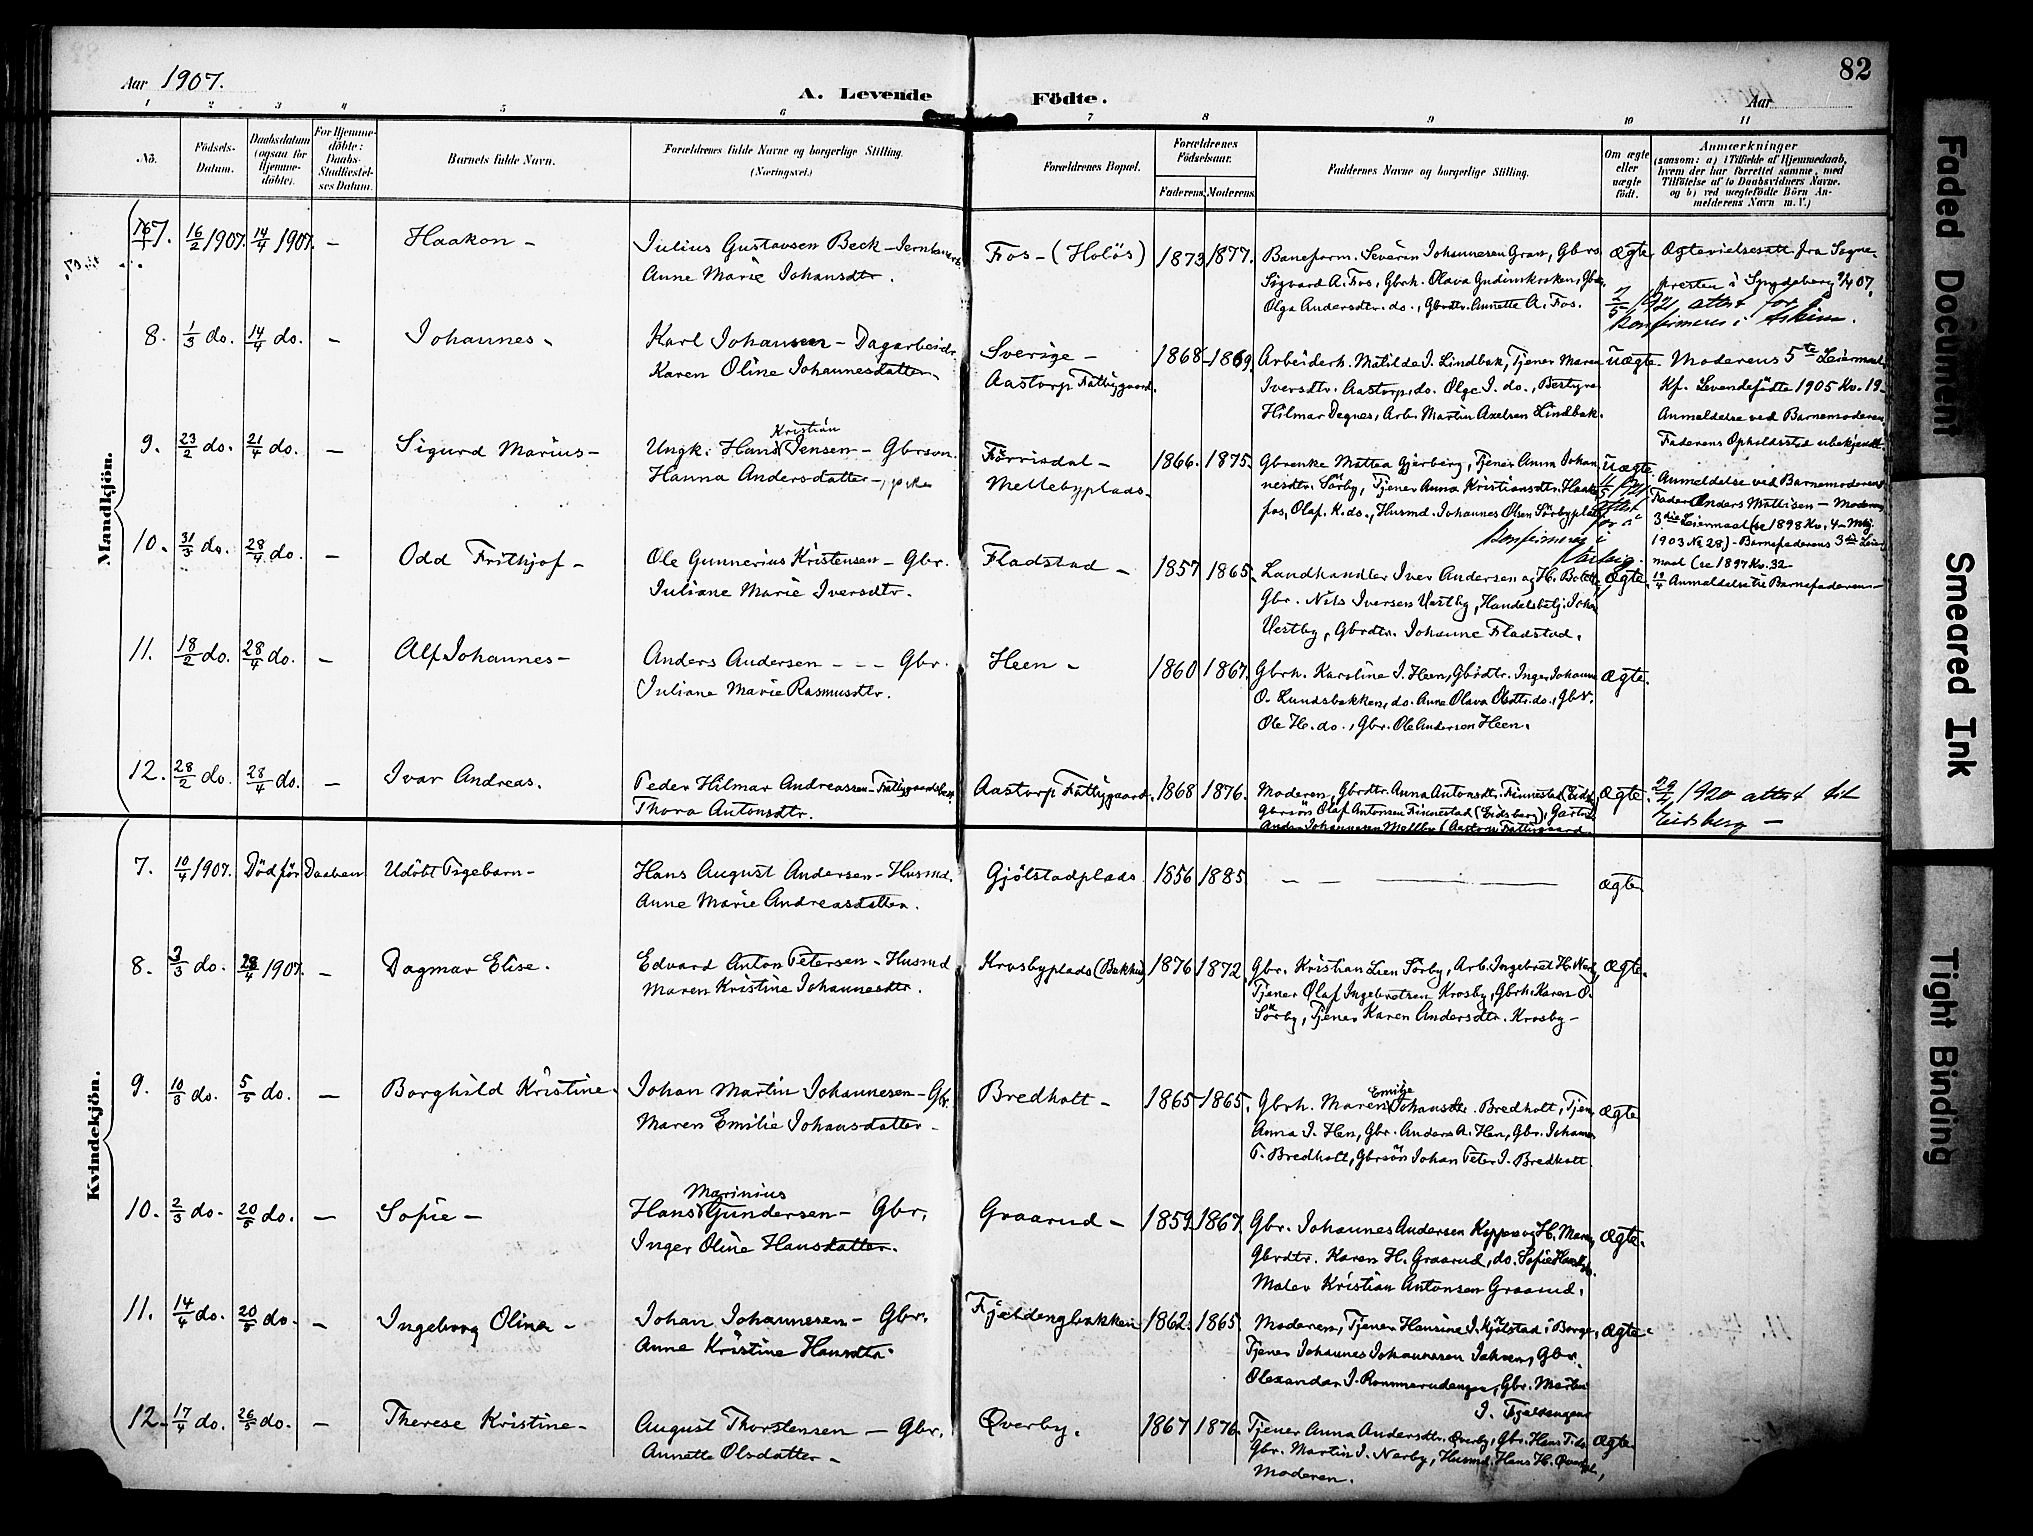 Aar 1907.
A. Levende Födte.
82
Aar
1 2 3 4 5 6 7 8 9 10 11
No.
Födsels-Datum.
Daabsdatum (ogsaa for Hjemme-döbte).
For Hjemme-döbte: Daabs-Stadfæstel-ses Datum.
Barnets fulde Navn.
Forældrenes fulde Navne og borgerlige Stilling. (Næringsvei.)
Forældrenes Bopæl.
Forældrenes Födselsaar.
Faderens. Moderens.
Faddernes Navne og borgerlige Stilling.
Om ægte eller uægte födt.
Anmærkninger
(saasom: a) i Tilfælde af Hjemmedaab, hvem der har forrettet samme, med Tilföielse af to Daabsvidners Navne. og b) ved uægtefödte Börn An-melderens Navn m. V.)
Mandkjön.
7. 16/2 1907. 14/4 1907. – Haakon –
Julius Gustavsen Beck –
Anne Marie Johansdtr.
Fos – (Holös) 1873 1877.
Baneform. Severin Johannesen Gran, Gbrs.
Sigvard A. Fos, Gbrh. Olava Gudimkroken,
Olga Andersdtr. do., Gbrdtr. Annette A. Fos.
Ægte
Ægtevielsesatt fra Sogne-
presten i
2/5 1921 attest for
konfirmeres i Askim.
8. 1/3 do. 14/4 do. – Johannes –
Karl Johansen – Dagarbeidr.
Karen Oline Johannesdatter –
Sverige –
Aastorp Fattiggaard.
1868 – 1869.
Arbeiderh. Matilde J. Lindbæk, Tjener Maren
Iversdtr. Aastorp, do. Olge I. do., Bestyrer
Hilmar Degnes, Arb. Martin Axelsen Lindbæk.
Uægte.
Moderens 5te Leiermaal
Kf. Levendefödte 1905 Kv. 19 –
Anmeldelse ved Barnemoderen
Faderens Opholdssted ubekjendt
9. 23/2 do. 21/4 do. – Sigurd Marius –
Ungk. Hans Kristian Jensen – Gbrsøn.
Hanna Andersdatter –
Förrisdal –
Mellebyplads –
1866. 1875.
Gbrenke Mattea Gjerberg, Tjener Anna Johan
nesdtr. Sörby, Tjener Anna Kristiansdtr. Haaka
fos, Olaf K. do., Husmd. Johannes Olsen Sörbyplads
Uægte
Attest for
konfirmeres i
Anmeldelse ved Barnemoderen
Fader Anders Mathisen – Moderens
3die Leiermaal (se 1898 Kv. 4 –
1903 No 28) – Barnefaderens 3die Leier
maal (se 1897 Kv. 32
Anmeldelse Barnefaderen –
10. 31/3 do. 28/4 do. – Odd Frithjof –
Ole Gunnerius Kristensen – Gbr.
Juliane Marie Iversdtr.
Fladstad –
1857 1865.
Landhandler Iver Andersen og H.
Gbr. Nils Iversen Vestby, Handelsbetj. Johan
Vestby, Gbrdtr. Johanne Fladstad.
Ægte.
11. 18/2 do. 28/4 do. – Alf Johannes –
Anders Andersen – – – Gbr.
Juliane Marie Rasmusdtr.
Heen –
1860 1867.
Gbrh. Karoline I. Heen, Gbrdtr. Inger Johanne
O. Lundsbakken, do. Anne Olava Olsdtr. do., Gbr.
Ole H. do., Gbr. Ole Andersen Heen.
Ægte.
12. 28/2 do. 28/4 do. – Ivar Andreas.
Peder Hilmar Andreassen –
Thora Antonsdtr.
Aastorp Fattiggaard. 1868 1876.
Moderen, Gbrdtr. Anna Antonsdtr. Finnestad
Gbrsön Olaf Antonsen Finnestad (Eidsberg),
Anders Johannesen Melleby (Aastorp Fattiggaard
Ægte.
29/4 1920 attest til
Eidsberg –
Kvindekjön.
7. 10/4 1907. Död för Daaben Udöbt Pigebarn –
Hans August Andersen – Husmd.
Anne Marie Andreasdatter.
Gjölstadplads 1856 1885
– – – –
Ægte
8. 3/3 do. 28/4 1907. – Dagmar Elise.
Edvard Anton Petersen – Husmd
Maren Kristine Johannesdtr.
Krosbyplads (Bakken) 1876 1872.
Gbr. Kristian Lien Sörby, Arb. Ingebret H.
Tjener Olaf Ingebretsen Krosby, Gbrh. Karen O.
Sörby, Tjener Karen Andersdtr. Krosby –
Ægte.
9. 10/3 do. 5/5 do. – Borghild Kristine.
Johan Martin Johannesen – Gbr.
Maren Emilie Johansdatter –
Bredholt – 1865 – 1865.
Gbrh. Maren Emilie Johansdtr. Bredholt, Tjen.
Anna I. Hen, Gbr. Anders A. Hen, Gbr. Johannes
P. Bredholt, Gbrsön Johan Peter I. Bredholt
Ægte
10. 2/3 do. 20/5 do. – Sofie –
Hans Marinius Gundersen – Gbr.
Inger Oline Hansdatter.
Graarud – 1859. 1867.
Gbr. Johannes Andersen Kopperu og H. Maren
Gbrdtr. Karen H. Graarud, do. Sofie
Maler Kristian Antonsen Graarud.
Ægte.
11. 14/4 do. 20/5 do. – Ingeborg Oline –
Johan Johannesen – Gbr.
Anne Kristine Hansdtr.
Fjeldengbakken 1862. 1865.
Moderen, Tjener Hansine I. Kjölstad i Borge,
Tjener Johannes Johannesen
Olexander I. Rommerudengen, Gbr. Martin
I. Fjeldengen
Ægte.
12. 17/4 do. 26/5 do. – Therese Kristine –
August Thorstensen – Gbr.
Annette Olsdatter –
Overby. 1867 1876.
Tjener Anna Andersdtr. Overby, Gbr. Hans T. do.
Gbr. Martin I. Nerby, Husmd. Hans H. Overby,
Moderen.
Ægte.
Faded Document
Smeared Ink
Tight Binding